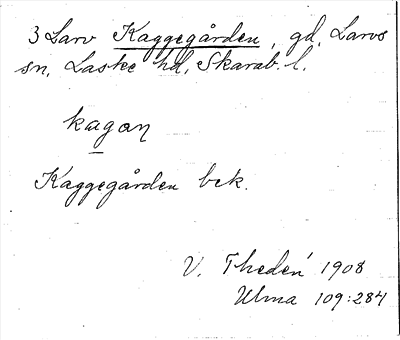 3 Larv Kaggegården, gd, Larvs
sn, Laske hd, Skarab. l.
kagan
Kaggegården bek.
V. Thedén 1908
Ulma 109:284